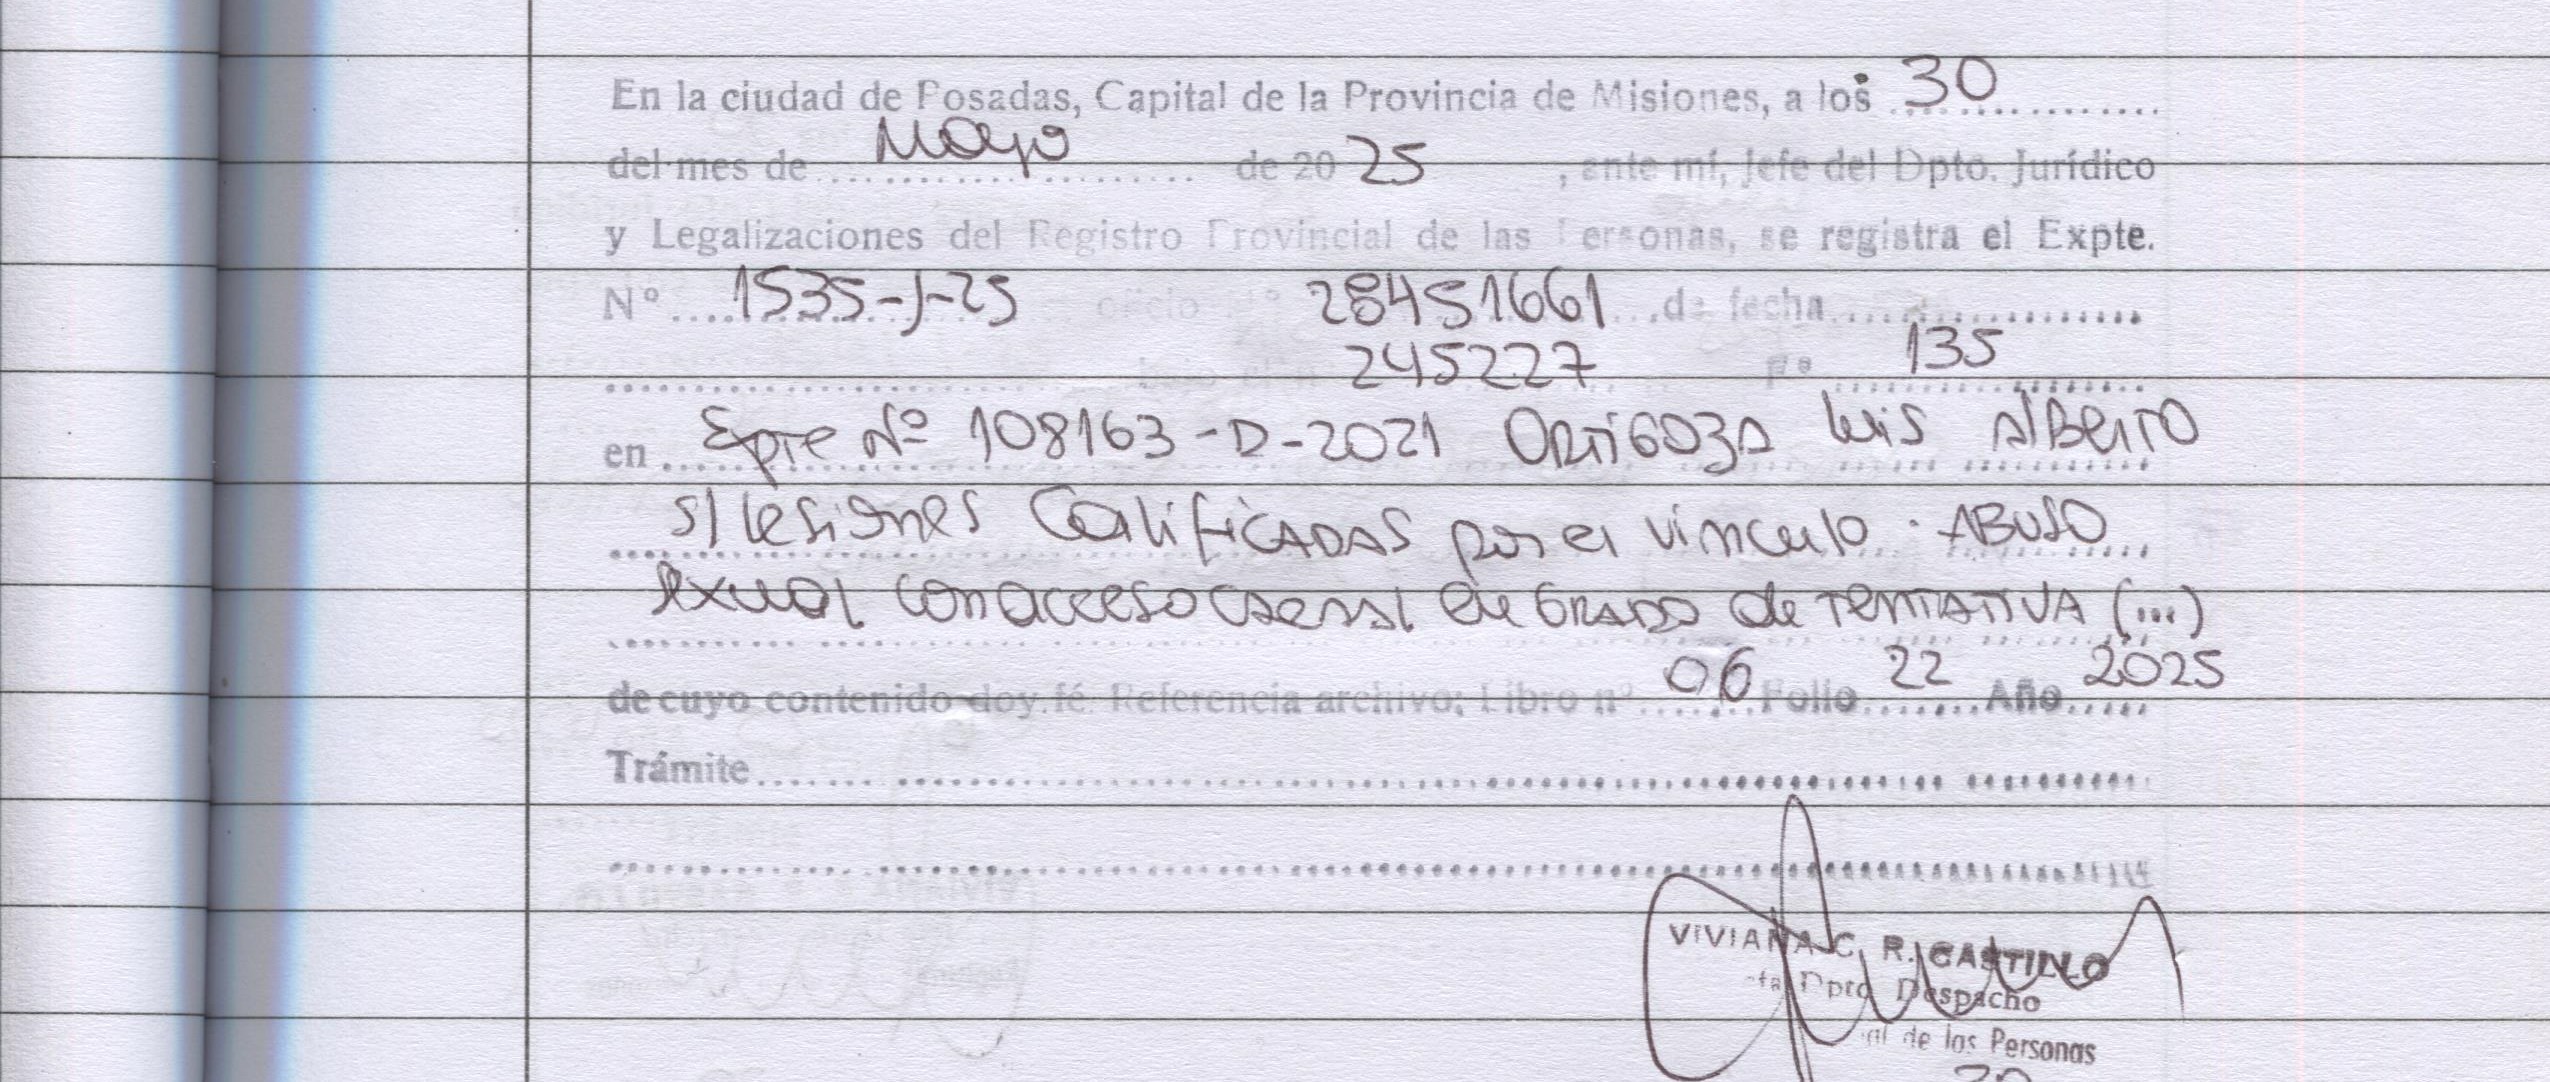 En la ciudad de Posadas, Capital de la Provincia de Misiones, a los 30
del mes de Mayo de 20 25, ante mí, Jefe del Dpto. Jurídico
y Legalizaciones del Registro Provincial de las Personas, se registra el Expte.
Nº 1535-J-25 oficio 28451661 de fecha
245227 Fº 135
en Expte Nº 108163-D-2021 ORTIGOZA Luis Alberto
s/ lesiones CalifiCADAS por el vinculo. ABUSO
sexual con acceso carnal en GRADO de TENTATIVA (...)
de cuyo contenido doy fé. Referencia archivo; Libro nº 06 Folio 22 Año 2025
Trámite
VIVIANA C. R. CASTILLO
Dpto Despacho
de las Personas